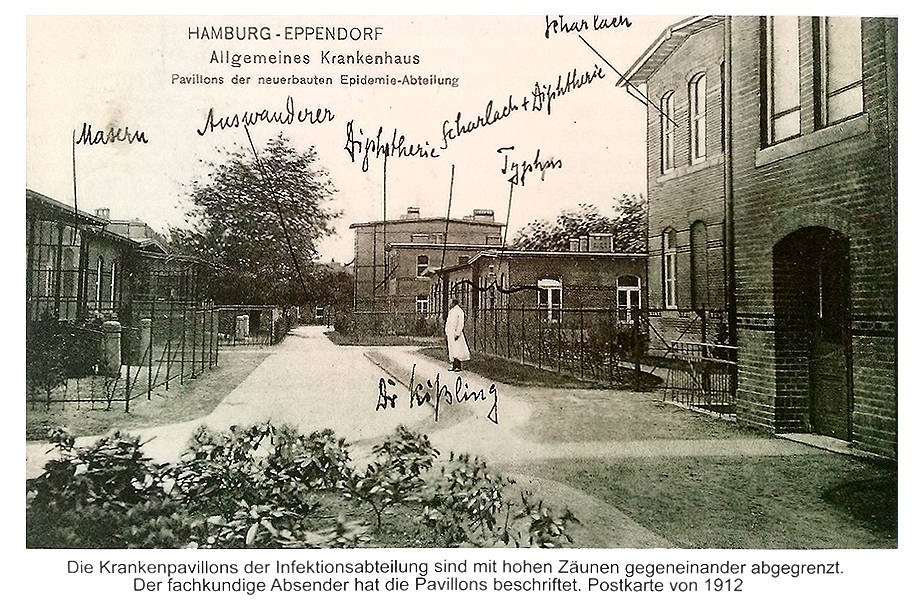 HAMBURG - EPPENDORF
Allgemeines Krankenhaus
Pavillons der neuerbauten Epidemie-Abteilung
Scharlach
Masern
Auswanderer
Diphtherie
Scharlach + Diphtherie
Typhus
Dr Kißling
Die Krankenpavillons der Infektionsabteilung sind mit hohen Zäunen gegeneinander abgegrenzt.
Der fachkundige Absender hat die Pavillons beschriftet. Postkarte von 1912